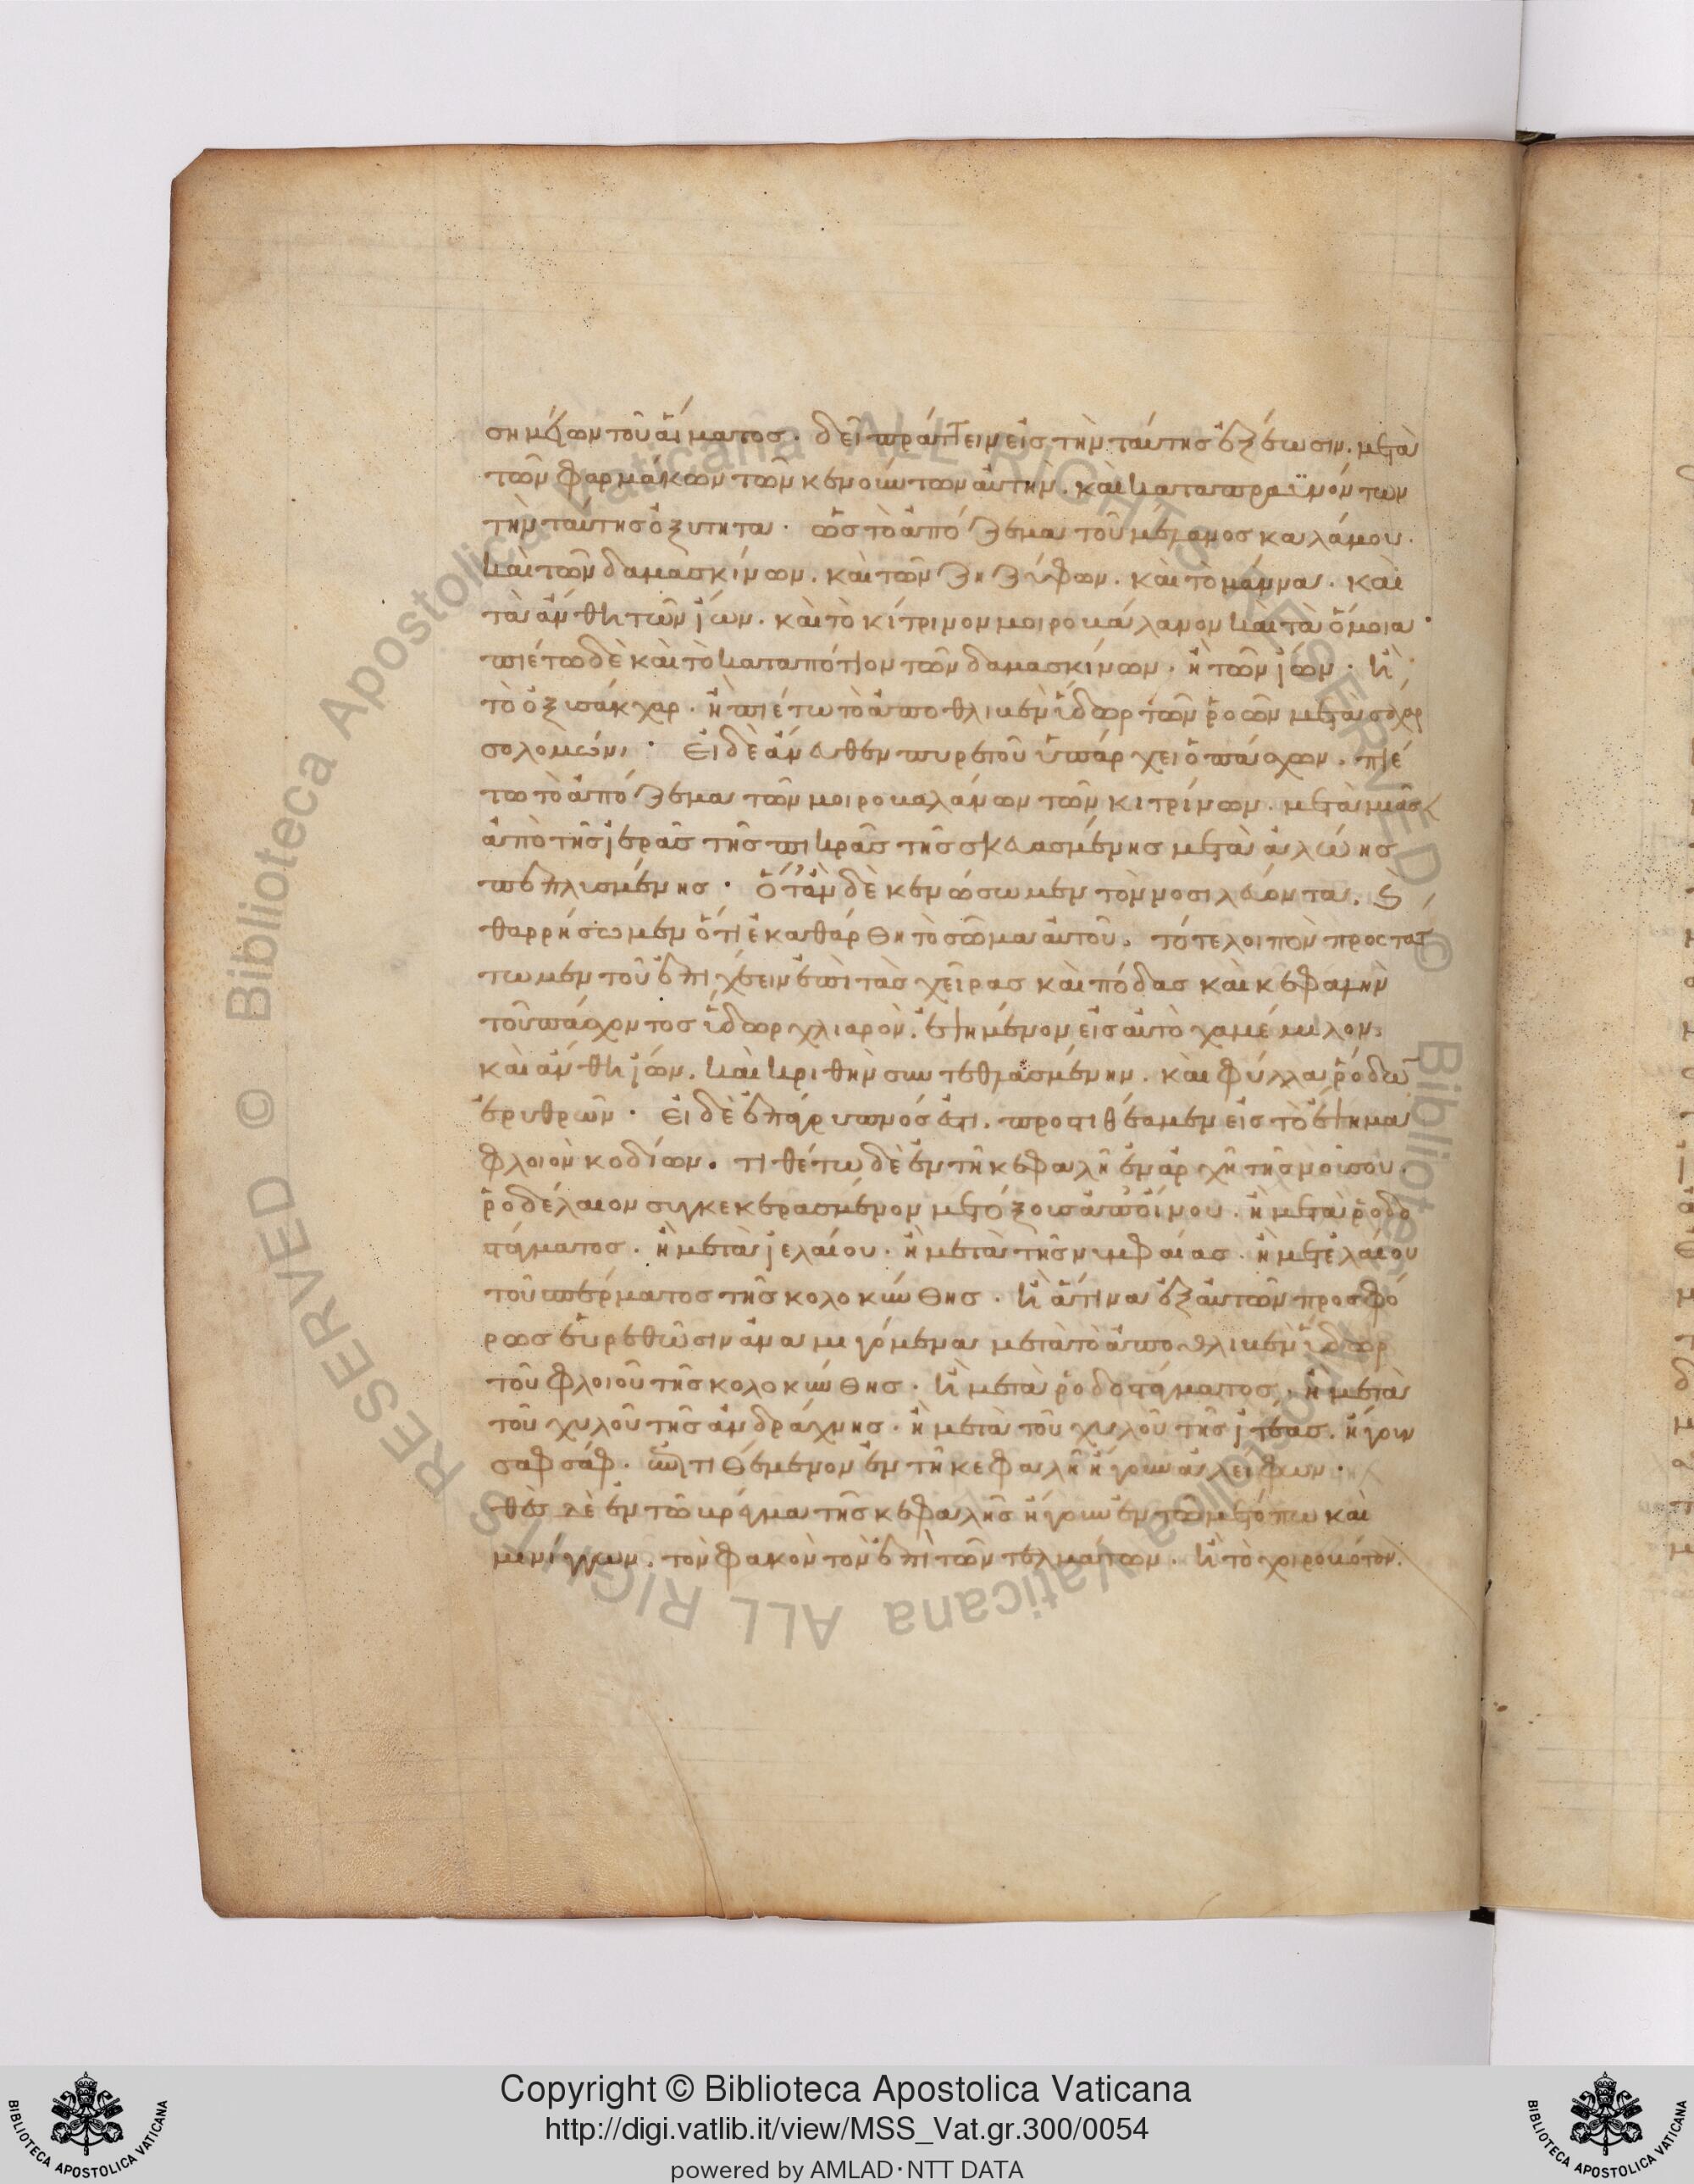 σημείων τοῦ αἵματος. δεῖ πράττειν εἰς τὴν ταύτης ἐξέωσιν. μετὰ
τῶν φαρμάκων τῶν κενούντων αὐτήν. καὶ καταπραϋνόντων
τὴν ταύτης ὀξύτητα. ὡς τὸ ἀπόζεμα τοῦ μέλανος καλάμου.
καὶ τῶν δαμασκίνων. καὶ τῶν ζηζύφων. καὶ τὸ μάννα. καὶ
τὰ ἄνθη τῶν ἴων. καὶ τὸ κίτρινον μοιροκάλανον καὶ τὰ ὅμοια.
πιέτω δὲ καὶ τὸ καταπότιον τῶν δαμασκίνων. ἢ τῶν ἴων. ἢ
τὸ ὀξυσάκχαρ. ἢ πιέτω τὸ ἀποθλιβὲν ὕδωρ τῶν ῥοῶν μετὰ σάχαρ
σολομῶνι. Εἰ δὲ ἄνευθεν πυρετοῦ ὑπάρχει ὁ πάσχων. πιέ
τω τὸ ἀπόζεμα τῶν μοιροκαλάνων τῶν κιτρίνων. μετὰ μιᾶς
ἀπὸ τῆς ἱερᾶς τῆς πικρᾶς τῆς σκευασμένης μετὰ ἀλώης
πεπλυσμένης. Ὅταν δὲ κενώσωμεν τὸν νοσηλεύοντα.
θαρρήσωμεν ὅτι ἐκαθάρθη τὸ σῶμα αὐτοῦ. τότε λοιπὸν προστάτ
τωμεν τοῦ ἐπιχέειν ἐπὶ τὰς χεῖρας καὶ πόδας καὶ κεφαλὴν
τοῦ πάσχοντος ὕδωρ χλιαρόν. ἑψημένον εἰς αὐτὸ χαμέμηλον.
καὶ ἄνθη ἴων. καὶ κριθὴν συντεθλασμένην. καὶ φύλλα ῥόδων
ἐρυθρῶν. εἰ δὲ ἐπάγρυπνός ἐστι. προστιθέαμεν εἰς τὸ ἕψημα
φλοιὸν κοδίων. τιθέτω δὲ ἐν τῇ κεφαλῇ ἐν ἀρχῇ τῆς νόσου.
ῥοδέλαιον συγκεκερασμένον μετ' ὄξους ἀπὸ οἴνου. ἢ μετὰ ῥοδο
στάγματος. ἢ μετὰ ἰελαίου. ἢ μετὰ τῆς νυμφαίας. ἢ μετ' ἐλαίου
τοῦ σπέρματος τῆς κολοκύνθης. ἢ ἅτινα ἐξ αὐτῶν προσφό
ρως εὑρεθῶσιν ἀναμιγόμενα μετὰ τὸ ἀποθλιβὲν ὕδωρ
τοῦ φλοιοῦ τῆς κολοκύνθης. ἢ μετὰ ῥοδοστάγματος. ἢ μετὰ
τοῦ χυλοῦ τῆς ἀνδράχνης. ἢ μετὰ τοῦ χυλοῦ τῆς ἰτέας. ἤγουν
σαφσάφ. τιθέμενον ἐν τῇ κεφαλῇ ἤγουν ἀλείφων.
θὲς δὲ ἐν τῷ κράματι τῆς κεφαλῆς ἤγουν ἐν τῷ μετόπω καὶ
μινίγγων. τὸν φακὸν τὸν ἐπὶ τῶν τελμάτων. ἢ τὸ χοιροκότον.
Copyright © Biblioteca Apostolica Vaticana
http://digi.vatlib.it/view/MSS_Vat.gr.300/0054
powered by AMLAD·NTT DATA
BIBLIOTECA APOSTOLICA VATICANA
BIBLIOTECA APOSTOLICA VATICANA